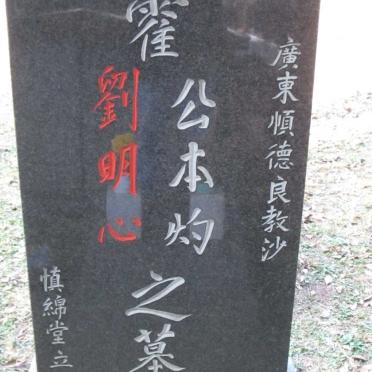 廣東順德良教沙
霍公本灼之墓
劉明心
慎綿堂立